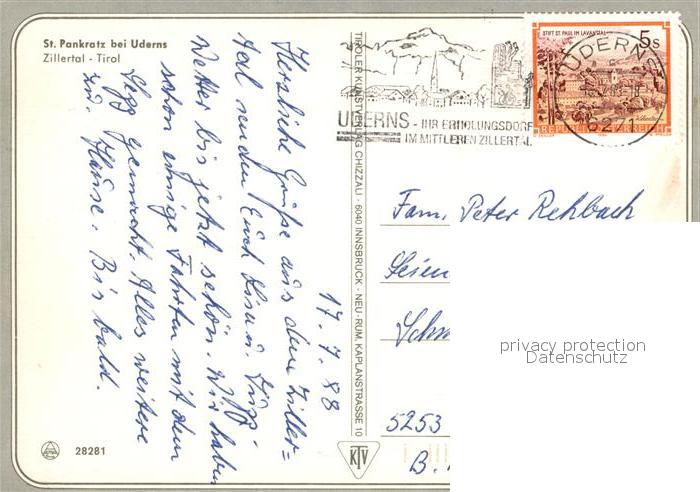 St. Pankratz bei Uderns
Zillertal - Tirol
17.7.88
Herzliche Grüße aus dem Ziller=
tal senden Euch
Wetter bis jetzt schön. Wir haben
schon einige Fahrten mit dem
gemacht. Alles weitere
zu Hause. Bis bald.
28281
TIROLER KUNSTVERLAG CHIZZALI · 6040 INNSBRUCK - NEU-RUM, KAPLANSTRASSE 10
KTV
UDERNS - IHR ERHOLUNGSDORF
IM MITTLEREN ZILLERTAL
STIFT ST. PAUL IM LAVANTTAL
5 S
REPUBLIK ÖSTERREICH
UDERNS
6271
Fam. Peter Rehbach
5253
B.
privacy protection
Datenschutz